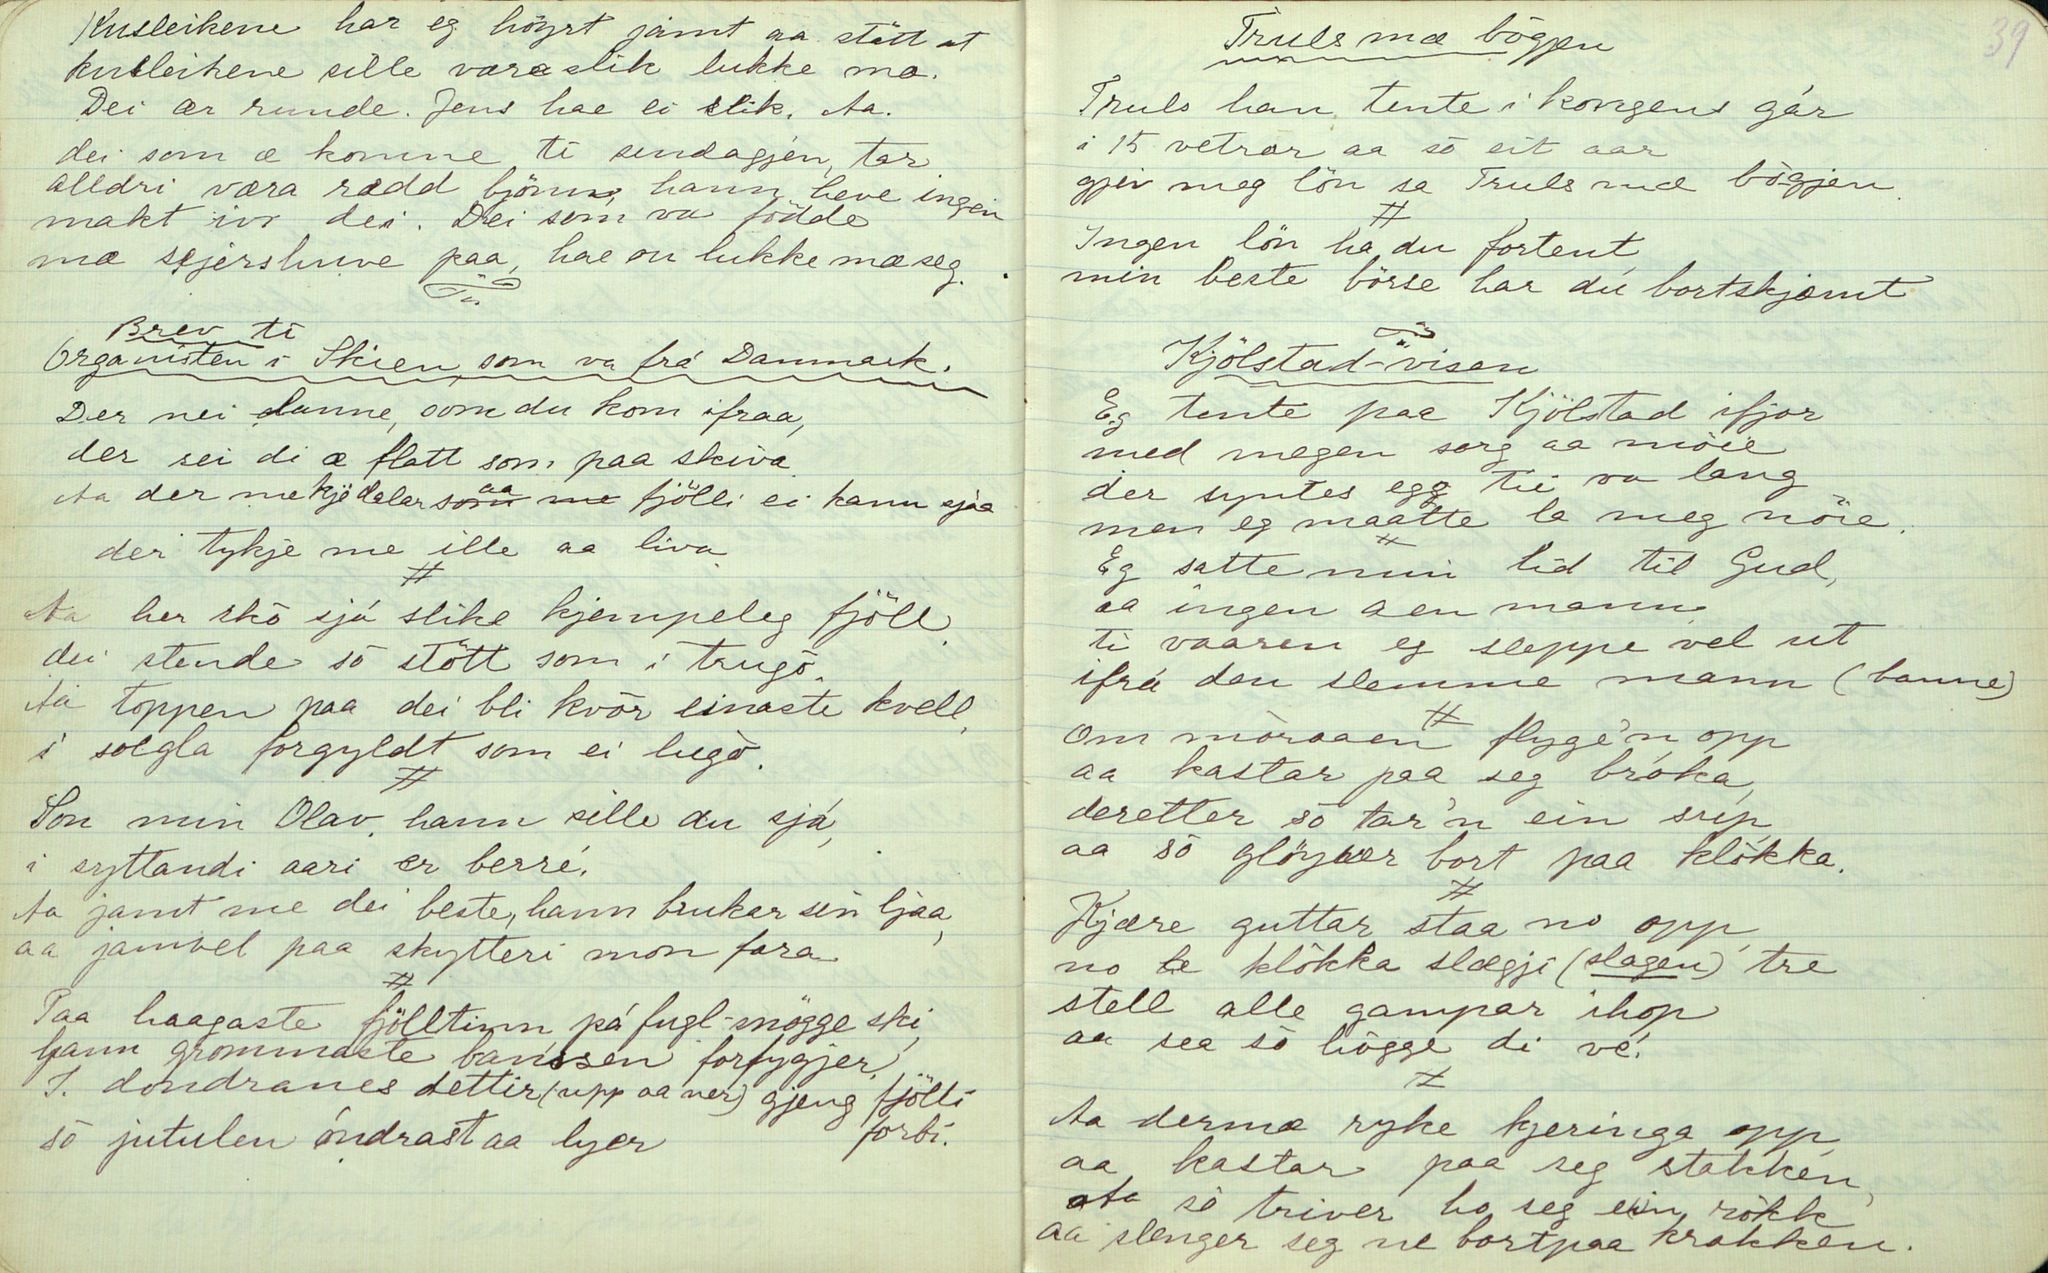 Kusleikene har eg höyrt jamt aa stött at
kusleikene sille vara slik lukke mæ.
Dei ær runde. Jens hae ei slik. Aa.
dei som æ komne ti sundagjen, tar
alldri væra rædd björnn, hann heve ingen
makt ivr dei. Dei som va födde
mæ sejershuve paa, hae ou lukke mæ seg.
Brev ti
Organisten i Skien som va frá Danmark.
Der nei danne, som du kom ifraa,
der sei di æ flatt som paa skiva
Aa der me kje dalar aa fjölli ei kann sjaa
dei tykje me ille aa liva
#
Aa her skò sjá slike kjempeleg fjöll
dei stende sò stött som i trugò.
Aa toppen paa dei bli kvòr einaste kvell,
i solgla forgyldt som ei lugò.
#
Son min Olav, hann sille du sjá,
i syttandi aari er berré.
Aa jamt me dei beste, hann brukar sin ljaa,
aa jamvel paa skytteri mon fara
#
Paa haagaste fjölltinn pá fugl-snögge ski,
hann grommaste bamsen forfygjer.
I. dondranes dettir (upp aa ner) gjeng fjölli
forbi.
sò jutulen óndrast aa lyer
39
Truls mæ bògjen
Truls han tente i kongens gár
i 15 vetrar aa sò eit aar
gjev meg lön sa Truls mæ bògjen
#
Ingen lön ha du fortent,
min beste börse har du bortskjæmt
Kjölstad-visen
Eg tente paa Kjölstad ifjor
med megen sorg aa möie
der syntes egg tii va lang
men eg maatte la meg nöie.
#
Eg satte min lid til Gud,
aa ingen aen mann
ti vaaren eg sleppe vel ut
ifrá den slemme mann (banne)
#
Om mòraaen flyge'n opp
aa kastar paa seg bróka,
deretter sò tar'n ein sup
aa sò glöyver bort paa klòkka.
#
Kjære guttar staa no opp,
no he klòkka slægji (slagen) tre
stell alle gampar ihop
aa sea sò högge di vé.
#
Aa dermæ ryke kjeringa opp
aa kastar paa seg stakken,
Aa sò triver ho seg ein ròkk
aa slenger seg ne bortpaa krakken.